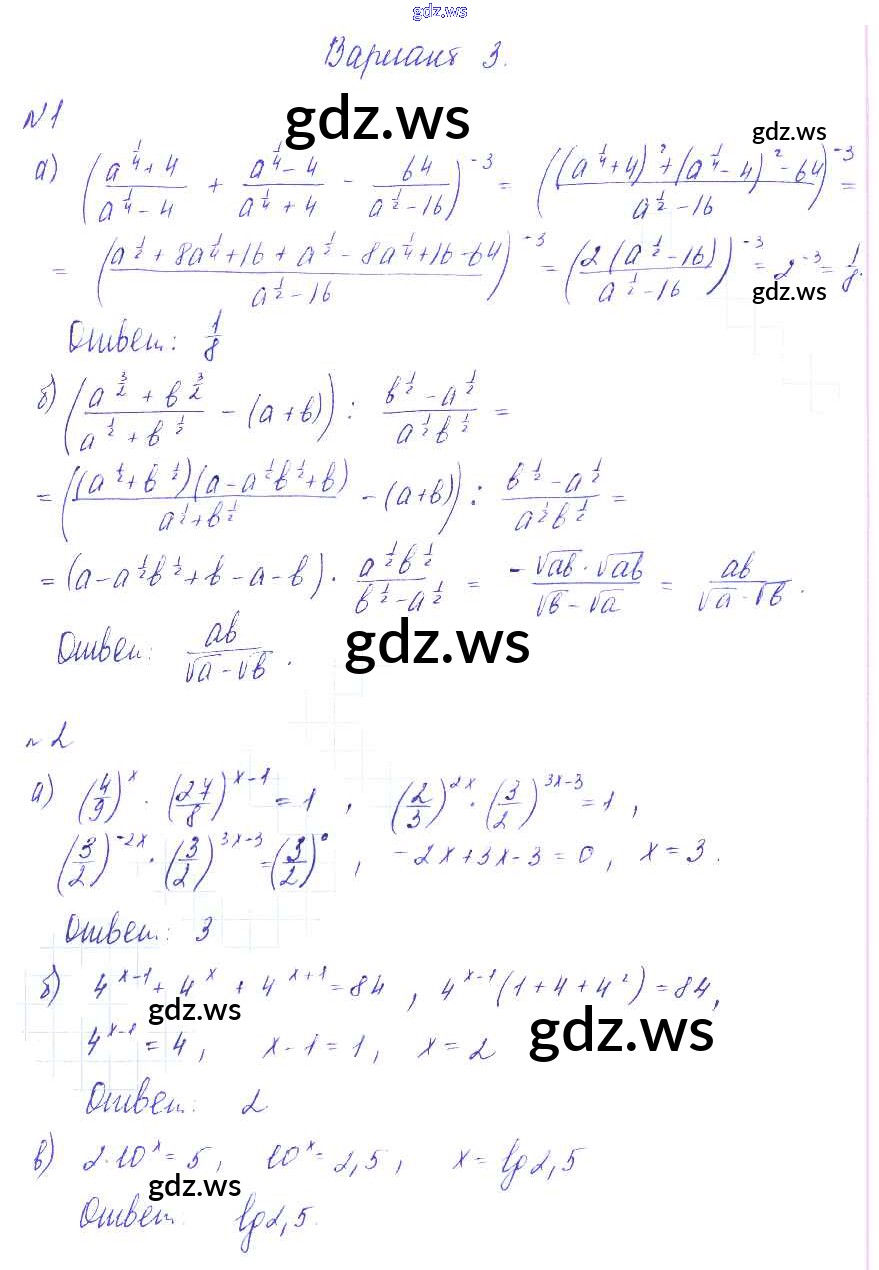 gdz.ws
Вариант 3.
№1
gdz.ws
gdz.ws
а) ((a^(1/4) + 4)/(a^(1/4) - 4) + (a^(1/4) - 4)/(a^(1/4) + 4) - 64/(a^(1/2) - 16))^(-3) = (((a^(1/4) + 4)^2 + (a^(1/4) - 4)^2 - 64)/(a^(1/2) - 16))^(-3) =
= ((a^(1/2) + 8a^(1/4) + 16 + a^(1/2) - 8a^(1/4) + 16 - 64)/(a^(1/2) - 16))^(-3) = (2(a^(1/2) - 16)/(a^(1/2) - 16))^(-3) = 2^(-3) = 1/8.
gdz.ws
Ответ: 1/8
б) ((a^(3/2) + b^(3/2))/(a^(1/2) + b^(1/2)) - (a + b)) : (b^(1/2) - a^(1/2))/(a^(1/2)b^(1/2)) =
= ((a^(1/2) + b^(1/2))(a - a^(1/2)b^(1/2) + b)/(a^(1/2) + b^(1/2)) - (a + b)) : (b^(1/2) - a^(1/2))/(a^(1/2)b^(1/2)) =
= (a - a^(1/2)b^(1/2) + b - a - b) · (a^(1/2)b^(1/2))/(b^(1/2) - a^(1/2)) = (-√ab · √ab)/(√b - √a) = ab/(√a - √b).
Ответ: ab/(√a - √b).
gdz.ws
№2
а) (4/9)^x · (27/8)^(x-1) = 1, (2/3)^(2x) · (3/2)^(3x-3) = 1,
(3/2)^(-2x) · (3/2)^(3x-3) = (3/2)^0, -2x + 3x - 3 = 0, x = 3.
Ответ: 3
б) 4^(x-1) + 4^x + 4^(x+1) = 84, 4^(x-1)(1 + 4 + 4^2) = 84,
gdz.ws
gdz.ws
4^(x-1) = 4, x - 1 = 1, x = 2
Ответ: 2
в) 2·10^x = 5, 10^x = 2,5, x = lg2,5
gdz.ws
Ответ lg2,5.